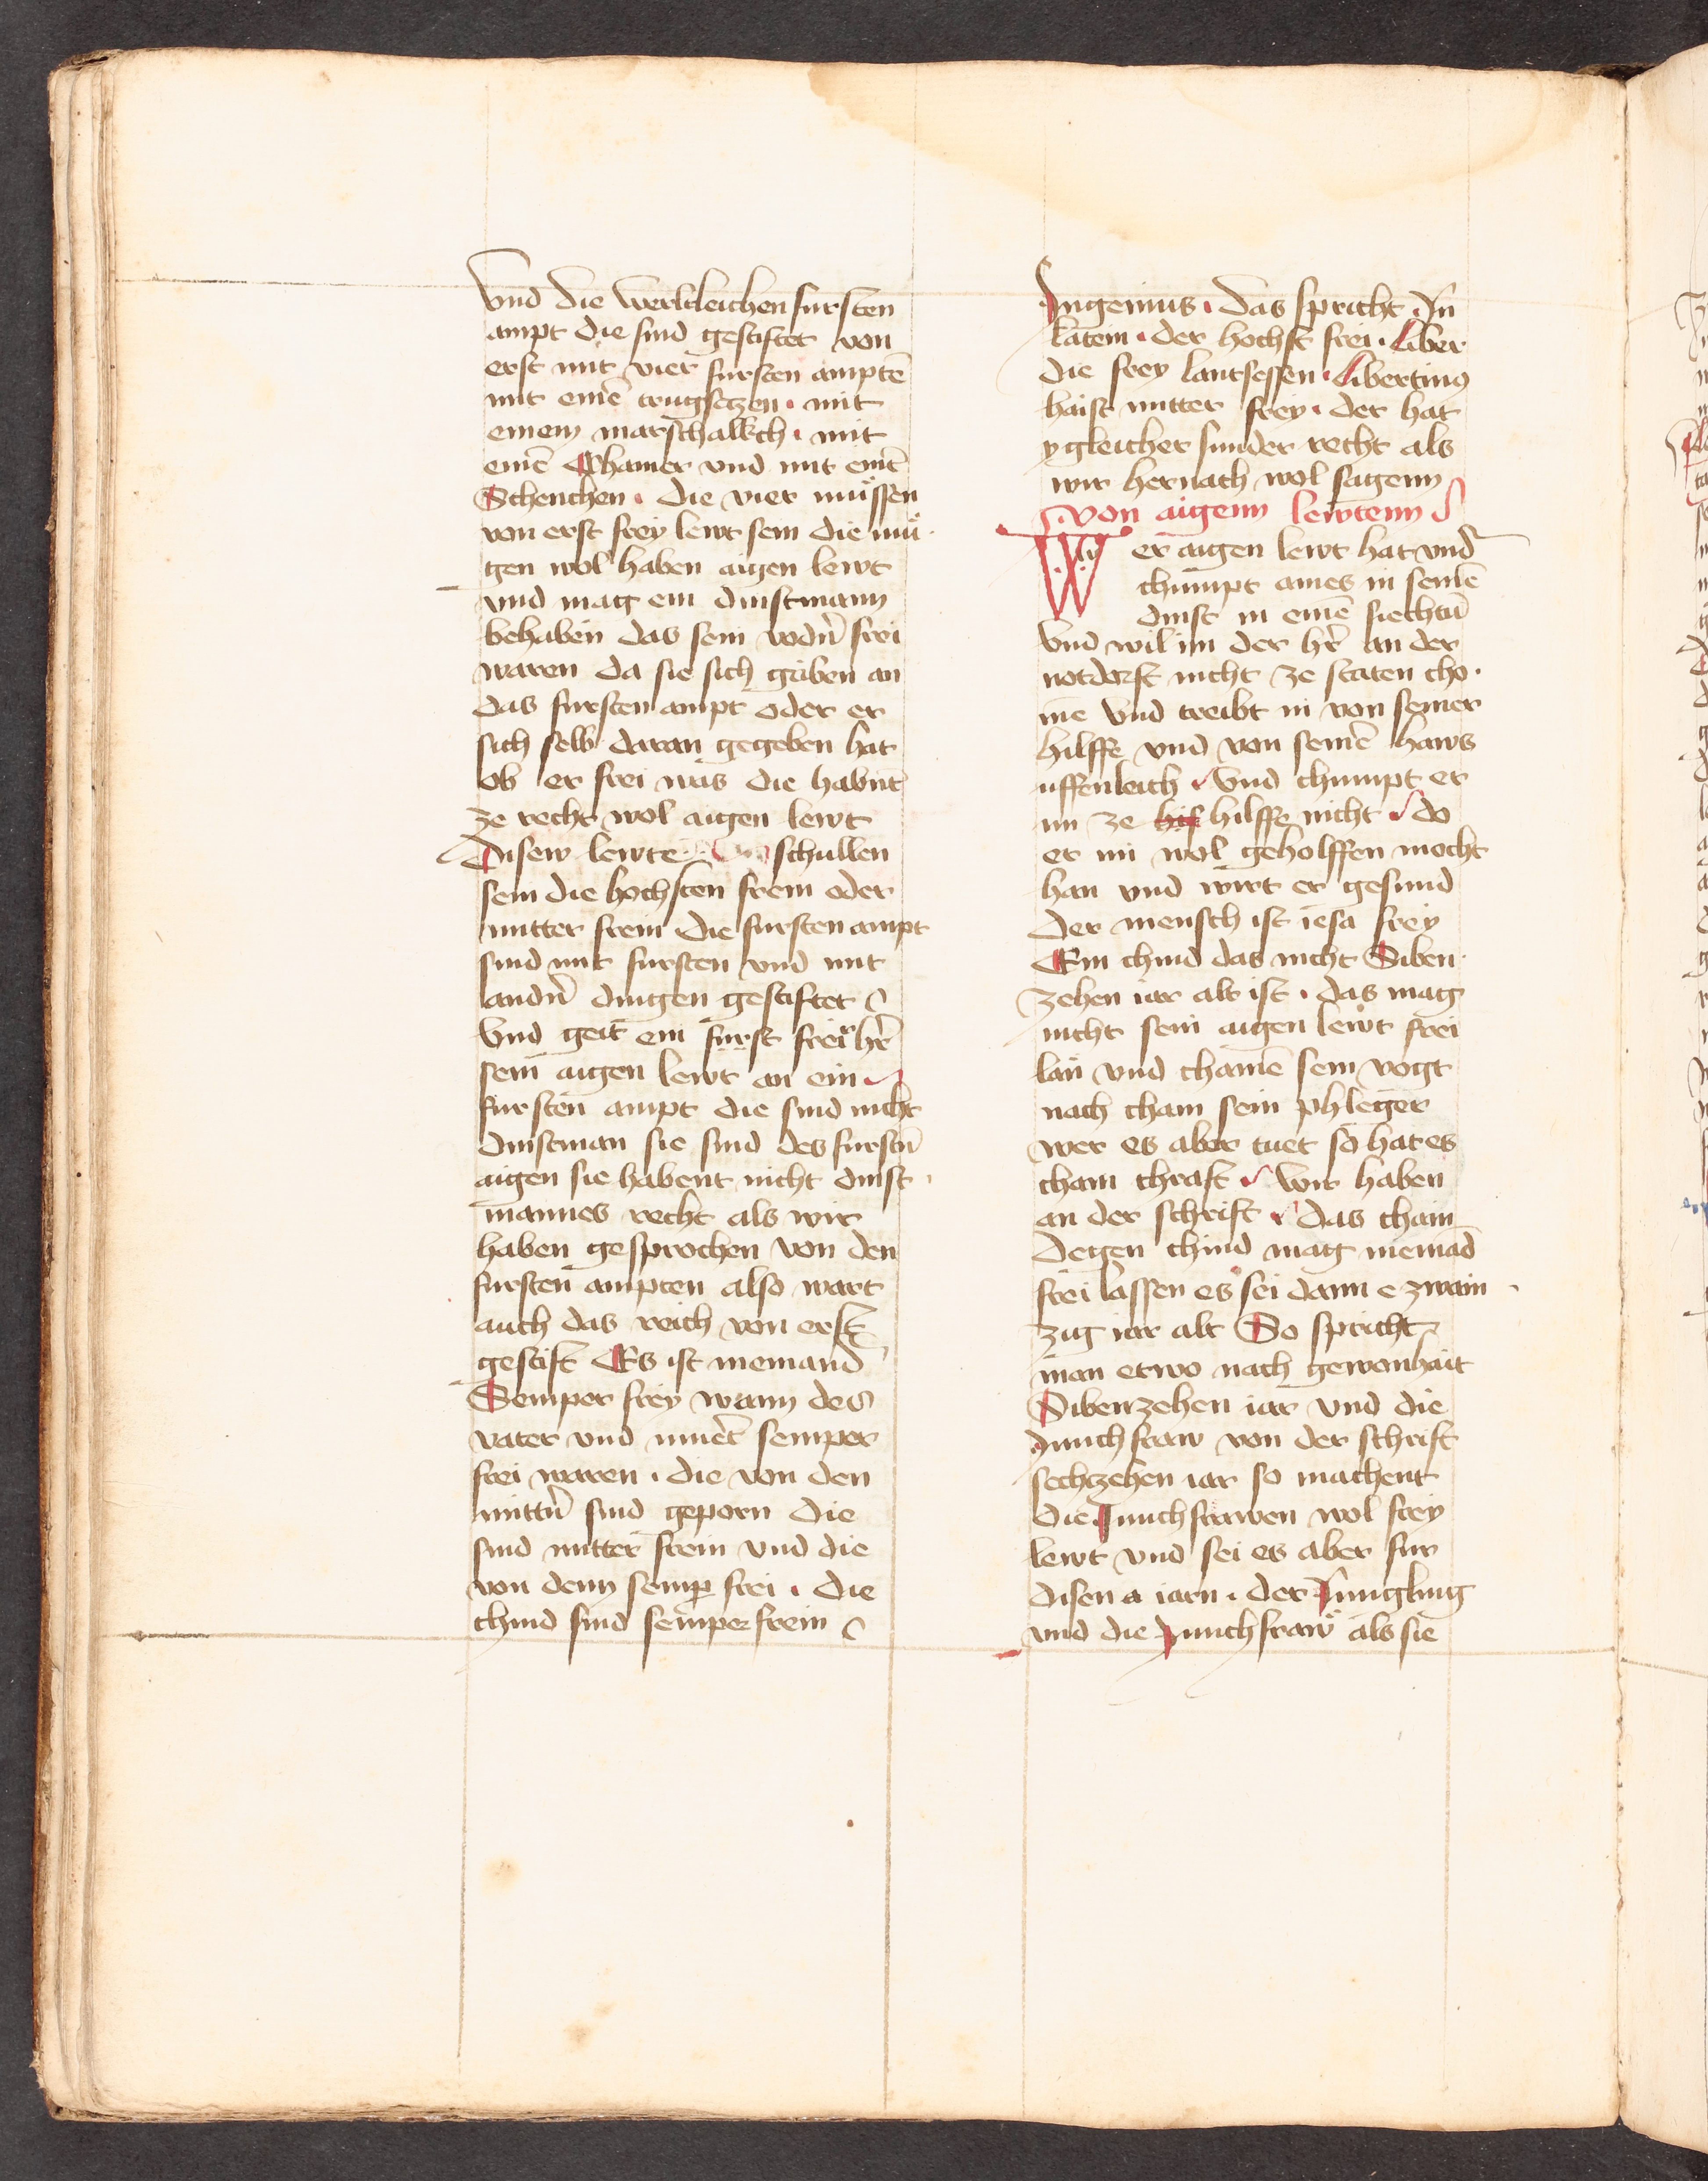 Vnd die werltleichen fursten
ampt die sind gestiftet von
erst mit vier fursten amptē
mit einē trugsetzen · mit
einem marschalkch · mit
einē Chamer vnd mit einē
Schenchen · die vier muͤssen
von erst frey lewt sein die muͤ
gen wol haben aigen lewt
vnd mag ein dinstmann
behaben das sein vodn̄ frei
waren da sie sich gaben an
das fursten ampt oder er
sich selb daran gegeben hat
ob er frei was die habnt
ze recht wol aigen lewt
Disew lewte schullen
sein die hochsten frein oder
mitter frein die fursten ampt
sind mit fursten vnd mit
andn̄ dingen gestiftet
Vnd geit ein furst frei hr̄
sein aigen lewt an ein
fursten ampt die sind nicht
dinstman sie sind des furstn̄
aigen sie habent nicht dinst
mannes recht als wir
haben gesprochen von den
fursten ampten also wart
auch das reich von erst
gestift Es ist niemand
Semper frey wann des
vater vnd muet̄ semper
frei waren · die von den
mittn̄ sind geporn die
sind mitter frein vnd die
von denn semꝑ frei · die
chind sind semper frein
Ingenius · das spricht In
latein · der hochst frei · Liber
die frey lantsessen · Libertinꝯ
haist mitter frey · der hat
ygleicher sunder recht als
wir hernach wol sagenn
von aigenn lewtenn
Wer aigen lewt hat vnd
chumpt aines in seinē
dinst in einē siechtū
Vnd wil im der hr̄ an der
notdorft nicht ze staten cho
me Vnd treibt in von seiner
hilffe vnd von seinē haws
uffenleich Vnd chumpt er
im ze hif hilffe nicht do
er im wol geholffen mocht
han vnd wirt er gesund
der mensch ist iesa frey
Ein chind das nicht Siben
zehen iar alt ist · das mag
nicht sein aigen lewt frei
lan vnd chainē sein vogt
nach chain sein phleger
wer es aber tuet so hat es
chain chraft Wir haben
an der schrift das chain
degen chind mag niemād
frei lassen es sei dann e zwain
zig iar alt So spricht
man etwo nach gewonhait
Sibenzehen iar vnd die
Junchfraw von der schrift
sechzehen iar so machent
die Junchfrawen wol frey
lewt vnd sei es aber fur
disen a iarn · der Jungling
vnd die Junchfraw als sie